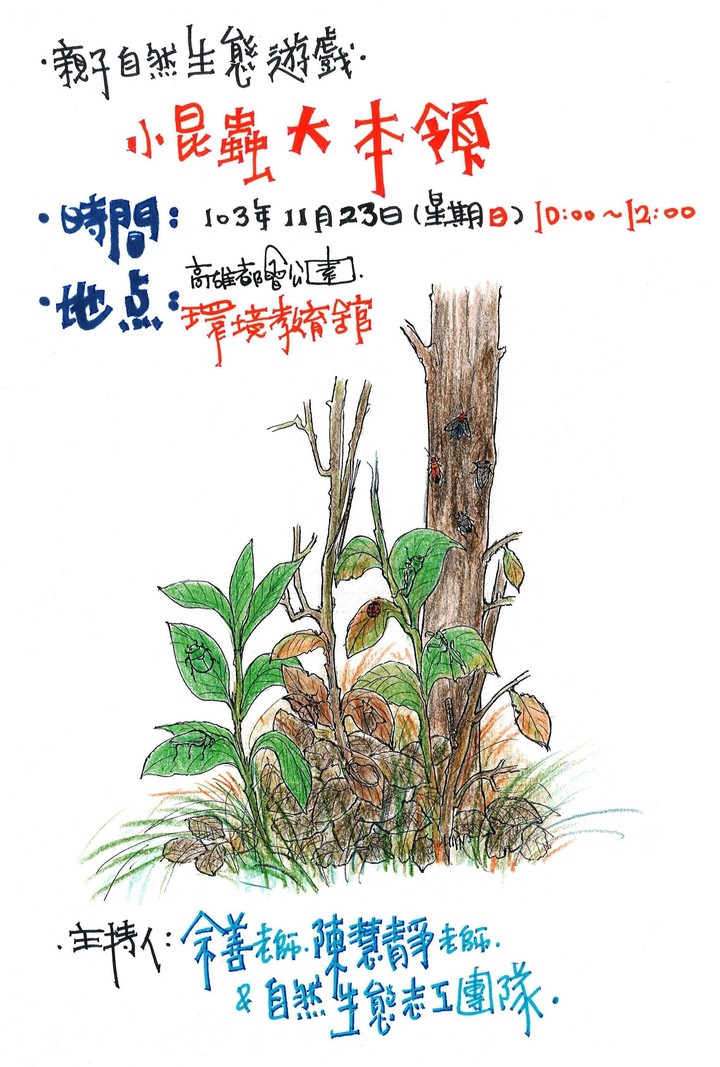 ·親子自然生態遊戲·
小昆蟲大本領
·時間：103年11月23日(星期日)10:00~12:00
高雄都會公園.
·地点：環境教育館
·主持人：余善老師.陳慧靜老師.
&自然生態志工團隊.